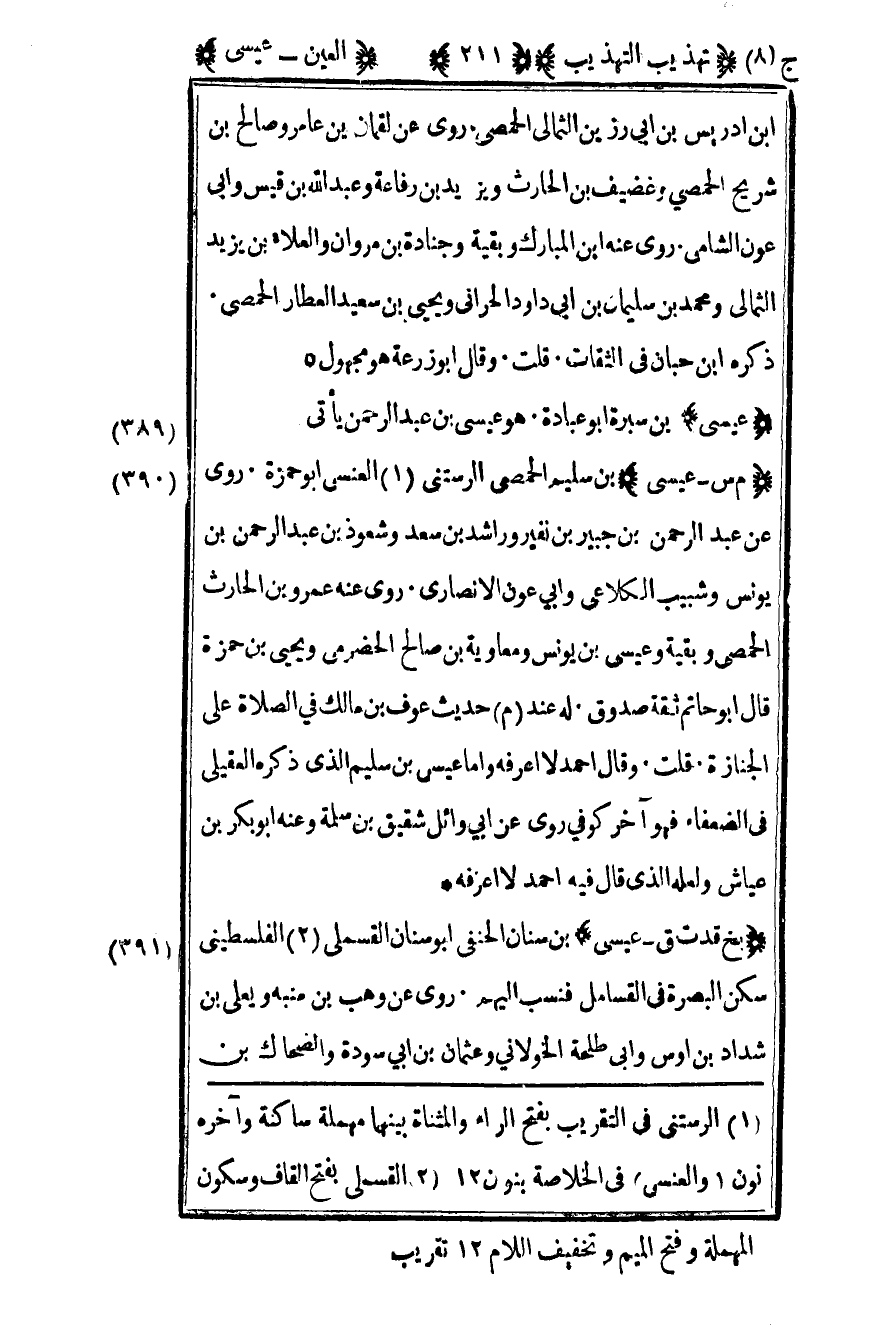 ج (٨) ﴿ تهذيب التهذيب ﴾ ﴿ ٢١١ ﴾ ﴿ العين ـ عيسى ﴾
ابن ادريس بن ابى رزين الثمالى الحمصى٠ روى عن لقمان بن عامر وصالح بن
شريح الحمصي وغضيف بن الحارث ويزيد بن رفاعة وعبد الله بن قيس وابى
عون الشامى٠ روى عنه ابن المبارك وبقية وجنادة بن مروان والعلاء بن يزيد
الثمالى ومحمد بن سليمان بن ابى داود الحرانى ويحيى بن سعيد العطار الحمصي٠
ذكره ابن حبان فى الثقات٠ قلت٠ وقال ابو زرعة هو مجهول٥
﴿ عيسى ﴾ بن سبرة ابو عبادة٠ هو عيسى بن عبد الرحمن يأتى (٣٨٩)
﴿ م س ـ عيسى ﴾ بن سليم الحمصى الرستنى (١) العنسى ابو حمزة٠ روى (٣٩٠)
عن عبد الرحمن بن جبير بن نفير وراشد بن سعد وشعوذ بن عبد الرحمن بن
يونس وشبيب الكلاعى وابي عون الانصارى٠ روى عنه عمرو بن الحارث
الحمصى وبقية وعيسى بن يونس ومعاوية بن صالح الحضرمى ويحيى بن حمزة
قال ابو حاتم ثقة صدوق٠ له عند (م) حديث عوف بن مالك في الصلاة على
الجنازة٠ قلت٠ وقال احمد لا اعرفه واما عيسى بن سليم الذى ذكره العقيلى
فى الضعفاء فهو آخر كوفي روى عن ابي وائل شقيق بن سلمة وعنه ابو بكر بن
عياش ولعله الذى قال فيه احمد لا اعرفه*
﴿ بخ قد ت ق ـ عيسى ﴾ بن سنان الحنفى ابو سنان القسملى (٢) الفلسطينى (٣٩١)
سكن البصرة فى القسامل فنسب اليهم ٠ روى عن وهب بن منبه ويعلى بن
شداد بن اوس وابى طلحة الخولاني وعثمان بن ابي سودة والضحاك بن
(١) الرستنى فى التقريب بفتح الراء والمثناة بينها مهملة ساكنة وآخره
نون ١ والعنسى) فى الخلاصة بنون ١٢ (٢ القسملى بفتح القاف وسكون
المهملة وفتح الميم وتخفيف اللام ١٢ تقريب